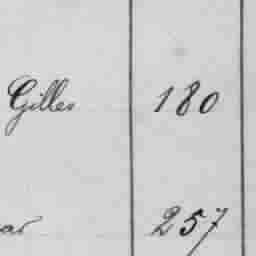 Gilles 180
257